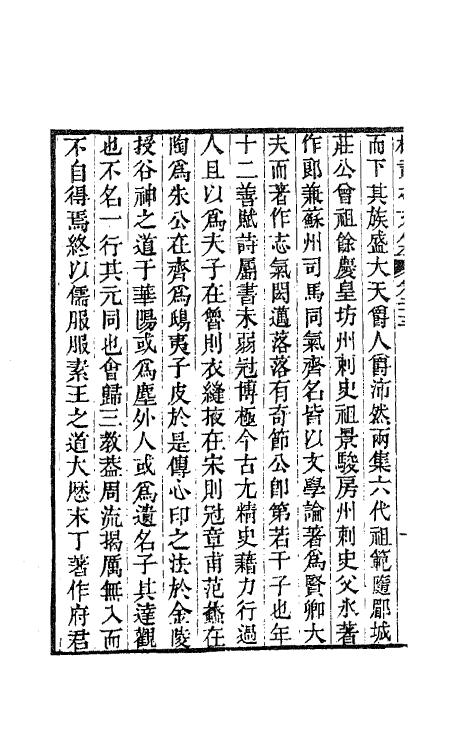 而下其族盛大天爵人爵沛然兩集六代祖範隨郿城
莊公曾祖餘慶皇坊州刺史祖景駿房州刺史父氷著
作郎兼蘇州司馬同氣齊名皆以文學論著爲賢卿大
夫而著作志氣閎邁落落有奇節公卽第若干子也年
十二善賦詩屬書未弱冠博極今古尤精史籍力行過
人且以爲夫子在魯則衣縫掖在宋則冠章甫范蠡在
陶爲朱公在齊爲鴟夷子皮於是傳心印之法於金陵
授谷神之道于華陽或爲塵外人或爲遺名子其達觀
也不名一行其元同也會歸三教葢周流揭厲無入而
不自得焉終以儒服服素王之道大歷末丁著作府君